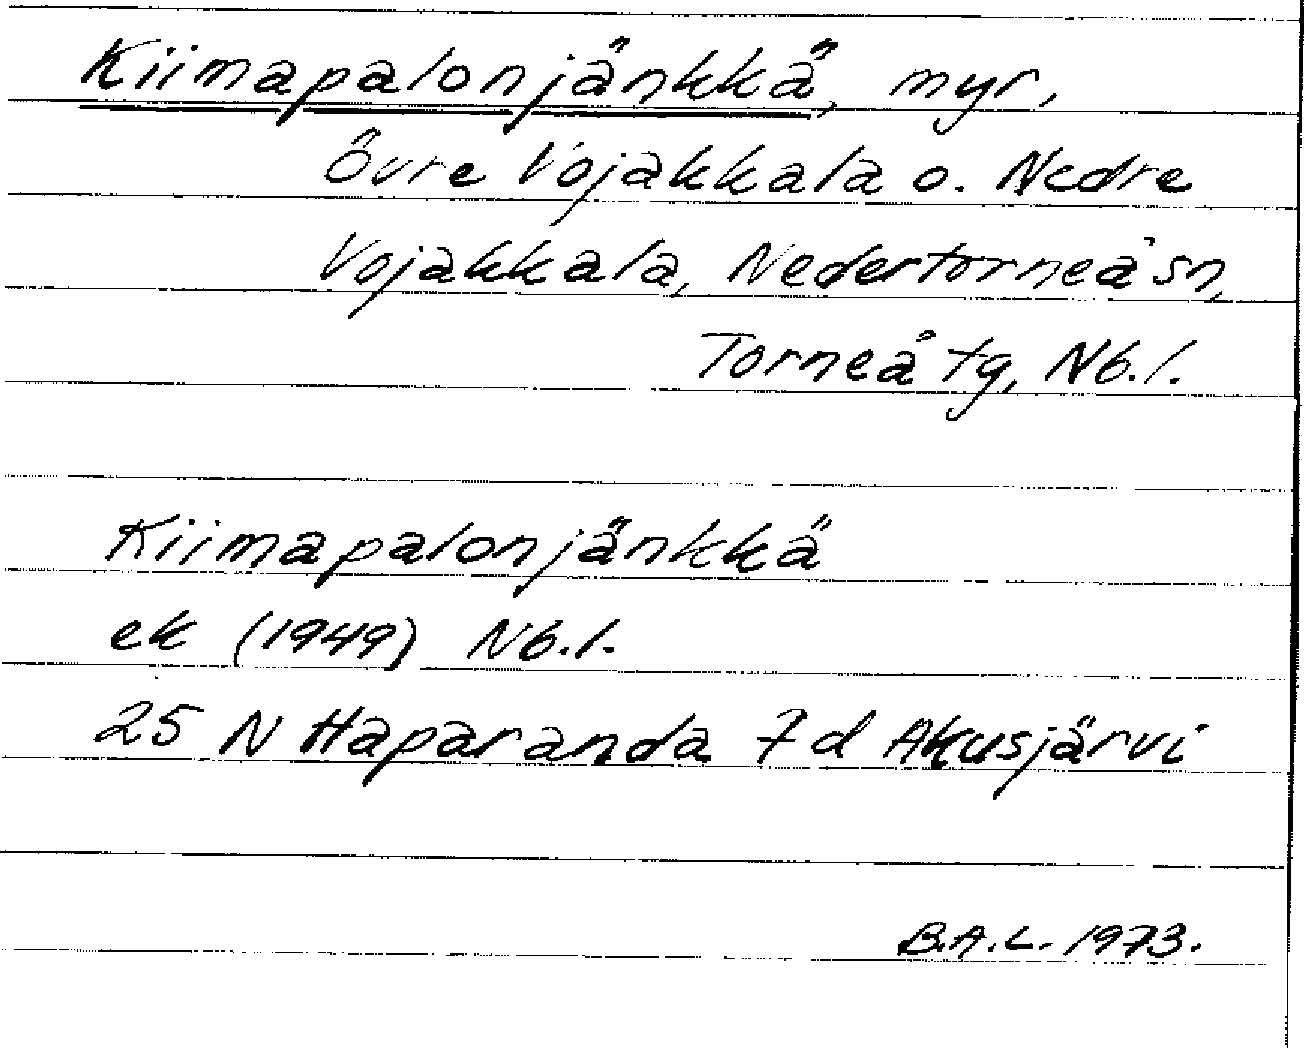 Kiimapalonjänkkä, myr,
Övre Vojakkala o. Nedre
Vojakkala, Nedertorneå sn,
Torneå tg, Nb.l.
Kiimapalonjänkkä
ek (1949) Nb.l.
25 N Haparanda 7d Akusjärvi
B.A.L. 1973.